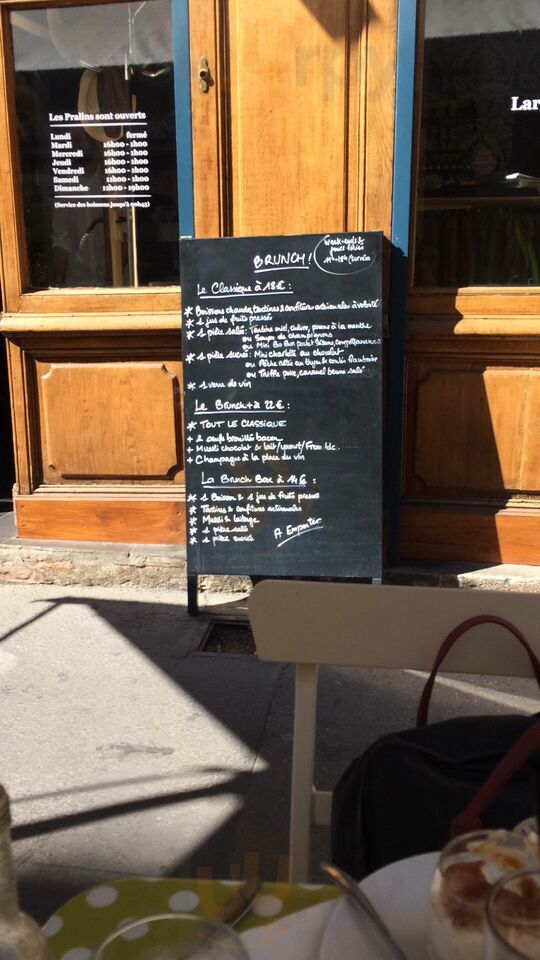 Les Pralins sont ouverts
Lundi fermé
Mardi 16h00 - 1h00
Mercredi 16h00 - 1h00
Jeudi 16h00 - 1h00
Vendredi 16h00 - 1h00
Samedi 11h00 - 1h00
Dimanche 11h00 - 19h00
(Service des boissons jusqu'à 00h45)
Lar
BRUNCH!
Week-ends &
jours fériés
Le Classique à 18€ :
* Boissons chaudes, tartines & confiture artisanales à volonté
* 1 jus de fruits pressés
* 1 pièce salée: Tartine miel, chèvre, pomme à la menthe
ou Soupe de champignons
ou Mini
* 1 pièce sucrée: Mini charlotte au chocolat
ou Pêche rôtie au thym & coulis framboise
ou Truffle poire, caramel beurre salé
* 1 verre de vin
Le Brunch + à 22€ :
* TOUT LE CLASSIQUE
+ 2 oeufs brouillés bacon
+ Muesli chocolat & lait/yaourt/From blc.
+ Champagne à la place du vin
La Brunch Box à 14€ :
* 1 Boisson & 1 jus de fruits pressés
* Tartines & confitures artisanales
* Muesli & laitage
* 1 pièce salée
* 1 pièce sucrée
A Emporter